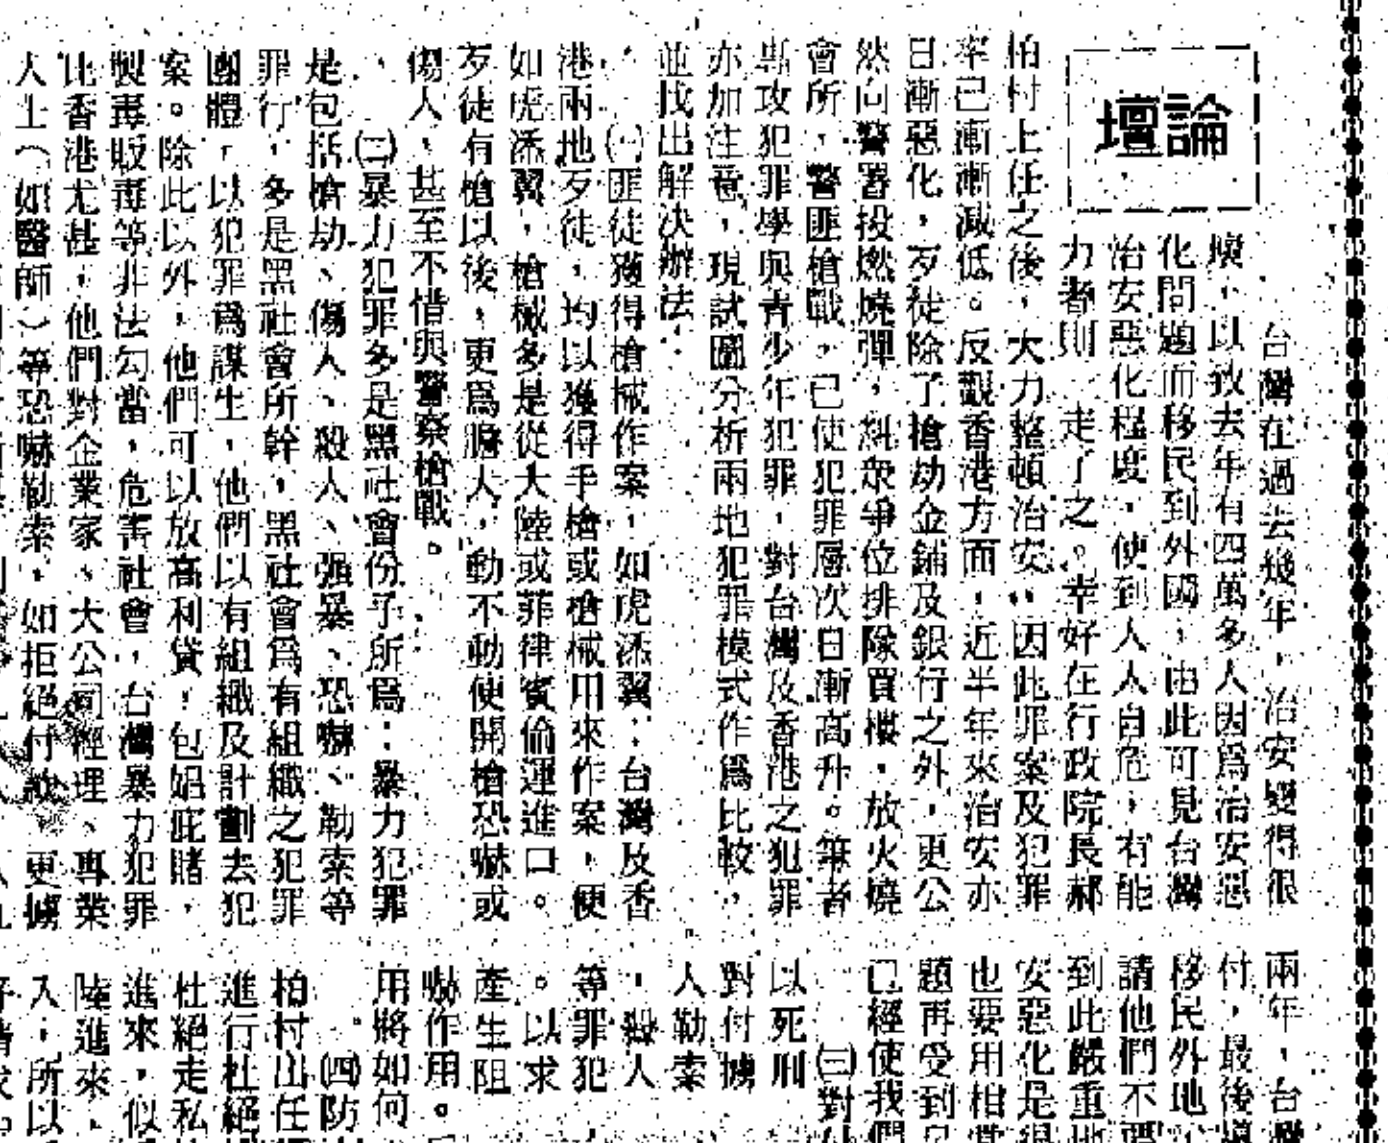 論壇
台灣在過去幾年，治安變得很
壞，以致去年有四萬多人因爲治安惡
化問題而移民到外國，由此可見台灣
治安惡化程度，使到人人自危，有能
力者則一走了之。幸好在行政院長郝
柏村上任之後，大力整頓治安，因此罪案及犯罪
率已漸漸減低。反觀香港方面，近半年來治安亦
日漸惡化，歹徒除了搶劫金鋪及銀行之外，更公
然向警署投燃燒彈，糾衆爭位排隊買樓，放火燒
會所，警匪槍戰，已使犯罪層次日漸高升。筆者
專攻犯罪學與青少年犯罪，對台灣及香港之犯罪
亦加注意，現試圖分析兩地犯罪模式作爲比較，
並找出解決辦法：
㈠匪徒獲得槍械作案，如虎添翼：台灣及香
港兩地歹徒，均以獲得手槍或槍械用來作案，便
如虎添翼，槍械多是從大陸或菲律賓偷運進口。
歹徒有槍以後，更爲膽大，動不動便開槍恐嚇或
傷人，甚至不惜與警察槍戰。
㈡暴力犯罪多是黑社會份子所爲：暴力犯罪
是包括槍劫、傷人、殺人、强暴、恐嚇、勒索等
罪行，多是黑社會所幹，黑社會爲有組織之犯罪
團體，以犯罪爲謀生，他們以有組織及計劃去犯
案。除此以外，他們可以放高利貸，包娼庇賭，
製毒販毒等非法勾當，危害社會，台灣暴力犯罪
比香港尤甚，他們對企業家、大公司經理、專業
人士（如醫師）等恐嚇勒索，如拒絕付款，更擄
兩年，台灣
付，最後
移民外地
請他們不要
到此嚴重地
安惡化是
也要用相當
題再受到
已經使我們
㈢對付
以死刑
對付擄
人勒索
，殺人
等罪犯
。以求
產生阻
嚇作用。
用將如何
㈣防
柏村上任
進行杜絕
杜絕走私
進來，似
陸進來，
入，所以